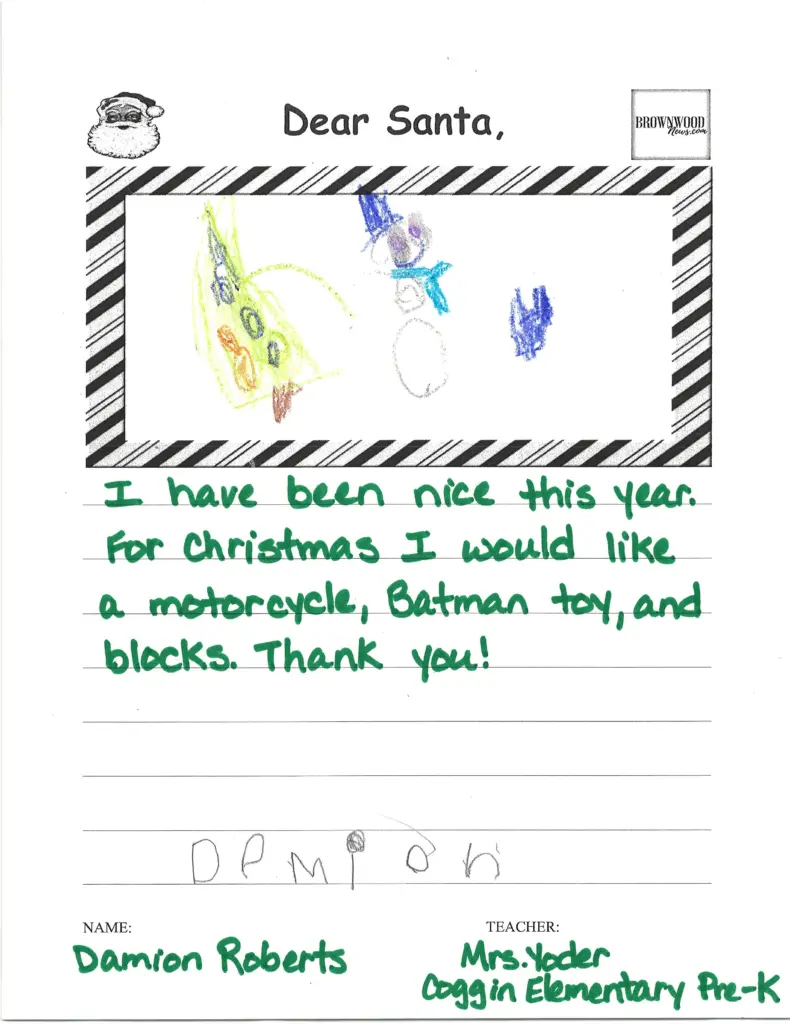 Dear Santa,
BROWNWOOD
News.com
I have been nice this year.
For Christmas I would like
a motorcycle, Batman toy, and
blocks. Thank you!
Damion
NAME:
TEACHER:
Damion Roberts
Mrs. Yoder
Coggin Elementary Pre-K